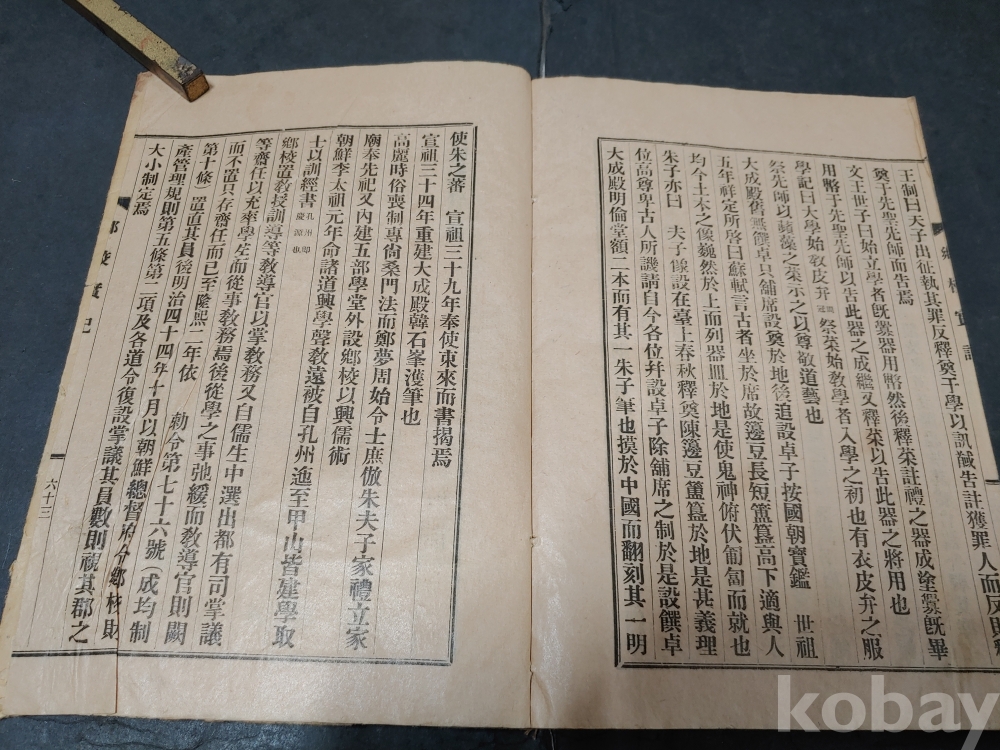 王制曰天子出征執其罪反釋奠于學以訊馘告註獲罪人而反則釋
奠于先聖先師而告焉
文王世子曰始立學者旣釁器用幣然後釋菜註禮之器成塗釁旣畢
用幣于先聖先師以告此器之成繼又釋菜以告此器之將用也
學記曰大學始敎皮弁祭菜始敎學者入學之初也有衣皮弁之服
祭先師以蘋藻之菜示之以尊敬道藝也
大成殿舊無饌卓只舖席設奠於地後追設卓子按國朝寶鑑 世祖
五年祥定所啓曰蘇軾言古者坐於席故籩豆長短簠簋高下適與人
均今土木之像巍然於上而列器皿於地是使鬼神俯伏匍匐而就也
朱子亦曰 夫子像設在臺上春秋釋奠陳籩豆簠簋於地是甚義理
位高尊卑古人所譏請自今各位幷設卓子除舖席之制於是設饌卓
大成殿明倫堂額二本而有其一朱子筆也摸於中國而翻刻其一明
使朱之蕃 宣祖三十九年奉使東來而書揭焉
宣祖三十四年重建大成殿韓石峯濩筆也
高麗時俗喪制專尙桑門法而鄭夢周始令士庶倣朱夫子家禮立家
廟奉先祀又內建五部學堂外設鄕校以興儒術
朝鮮李太祖元年命諸道興學聲敎遠被自孔州迤至甲山皆建學取
士以訓經書孔州卽慶源也
鄕校置敎授訓導等敎導官以掌敎務又自儒生中選出都有司掌議
等齋任以充率學生而從事敎務焉後從學之事弛緩而敎導官則闕
而不置只存齋任而已至隆熙二年依 勅令第七十六號(成均制
第十條)置直其員後明治四十四年十月以朝鮮總督府令鄕校財
產管理規則第五條第二項及各道令復設掌議其員數則視其郡之
大小制定焉
鄕校實記
六十三